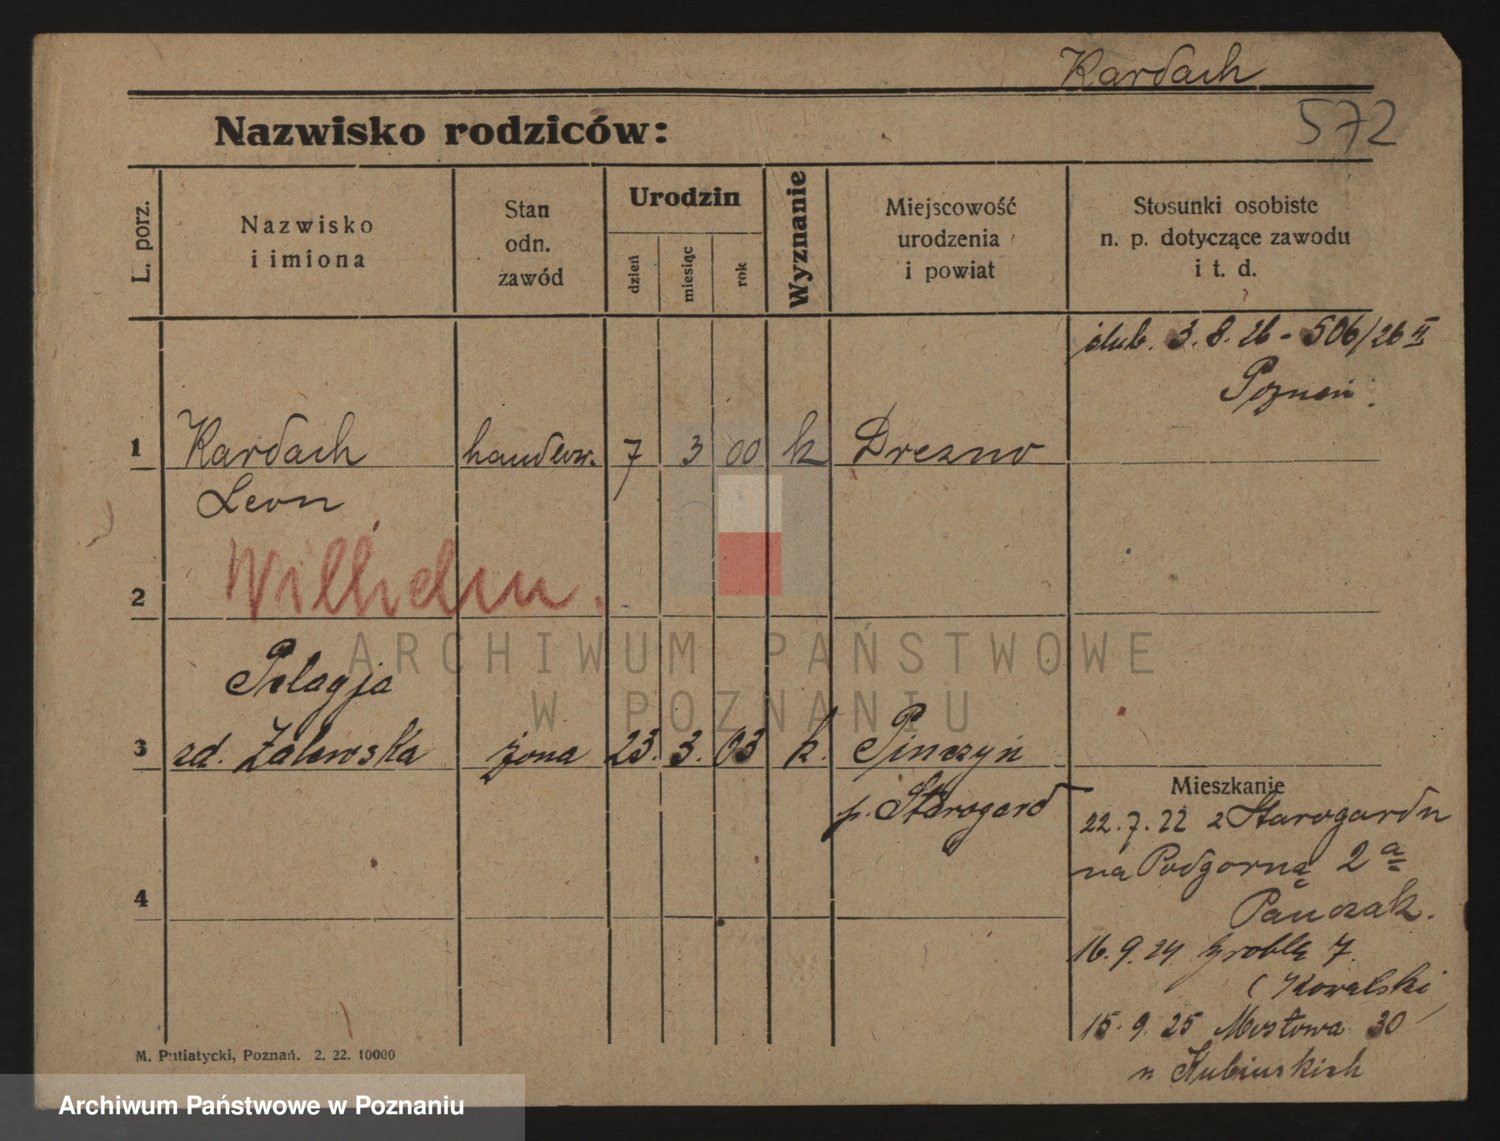 Kardach
572
Nazwisko rodziców:
L. porz.
Nazwisko
i imiona
Stan
odn.
zawód
Urodzin
dzień
miesiąc
rok
Wyznanie
Miejscowość
urodzenia
i powiat
Stosunki osobiste
n. p. dotyczące zawodu
i t. d.
ślub. 3. 8. 26 - 506/26 II
Poznań.
1 Kardach handlow. 7 3 00 k Drezno
Leon
2 Wilhelm.
ARCHIWUM PAŃSTWOWE
W POZNANIU
Pelagja
3 zd. Zalewska żona 23. 3. 03 k. Pinczyn
p. Starogard
Mieszkanie
22. 7. 22 z Starogardu
na Podgorną 2 a
Panczak.
4
16. 9. 24 Groble 7.
(Kowalski
15. 9. 25 Mostowa 30
u Kubiuskich
M. Putiatycki, Poznań. 2. 22. 10000
Archiwum Państwowe w Poznaniu